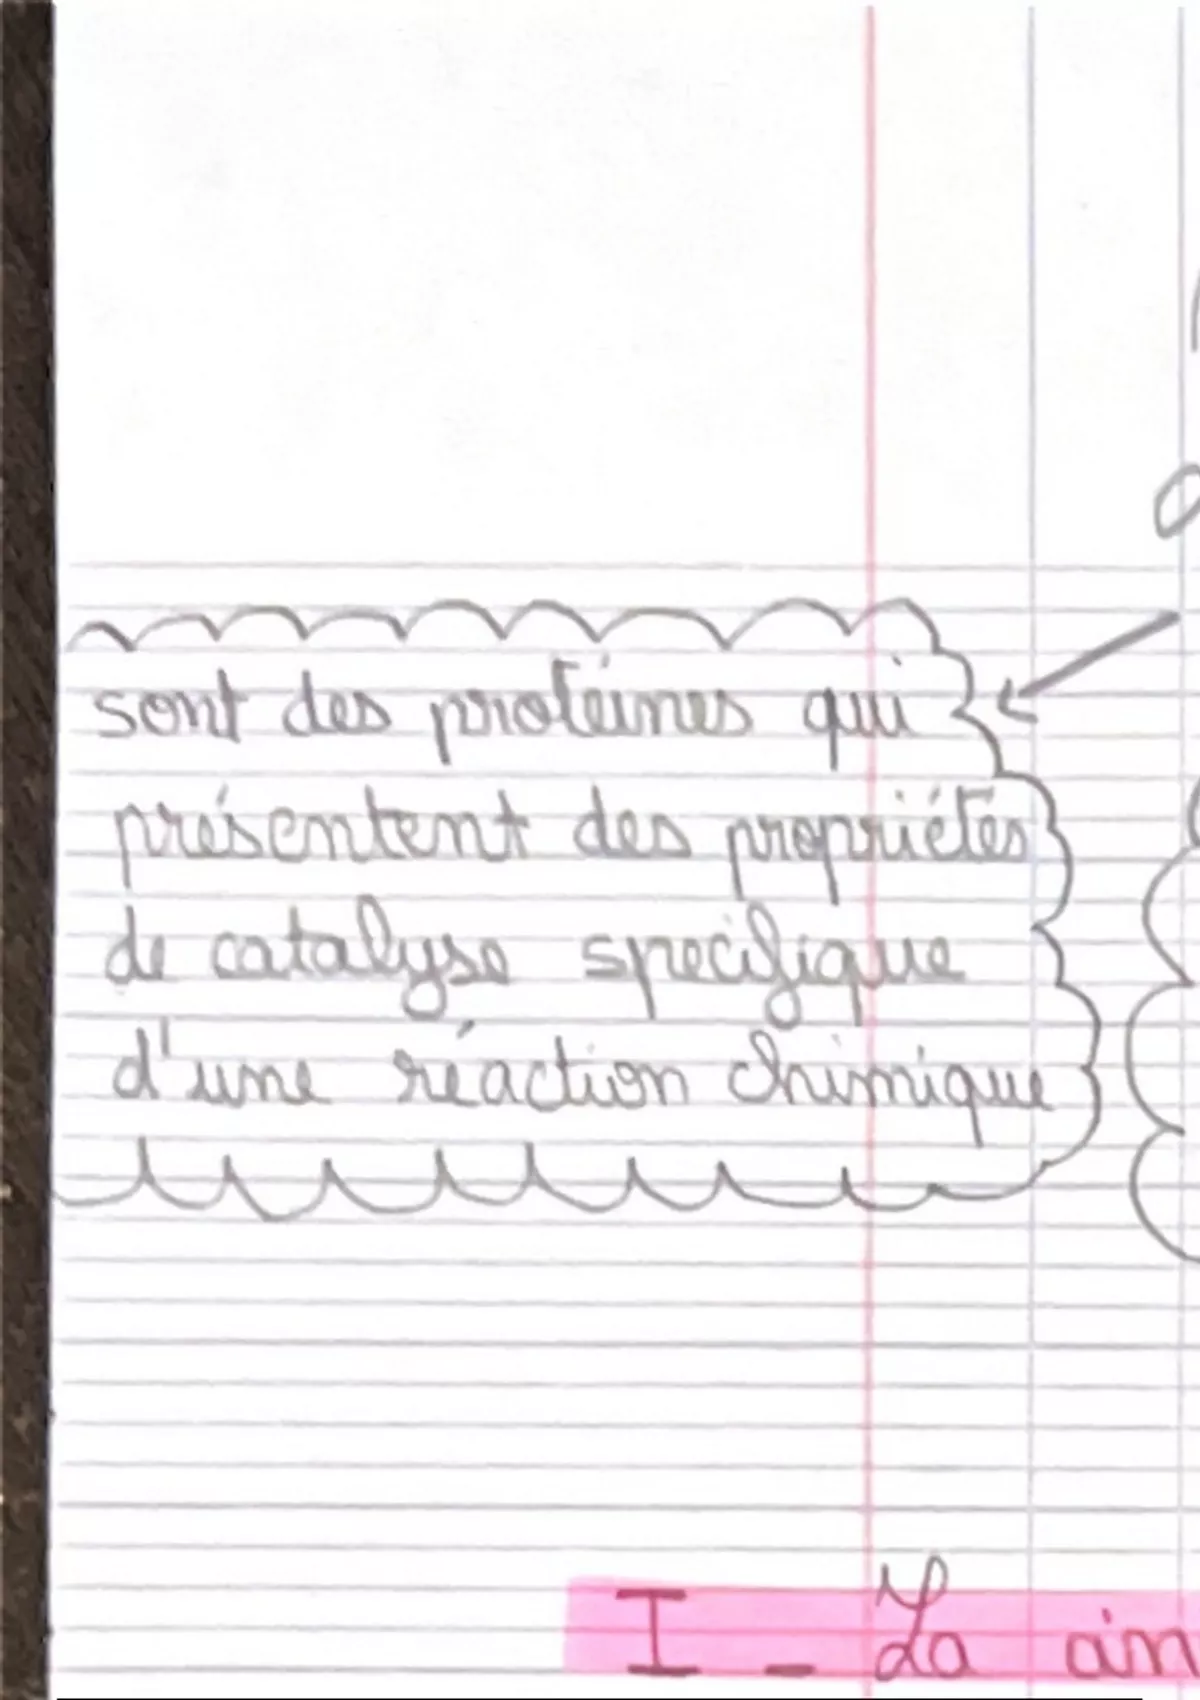 sont des protéines qui
présentent des propriétés
de catalyse specifique
d'une réaction chimique
I - La cin